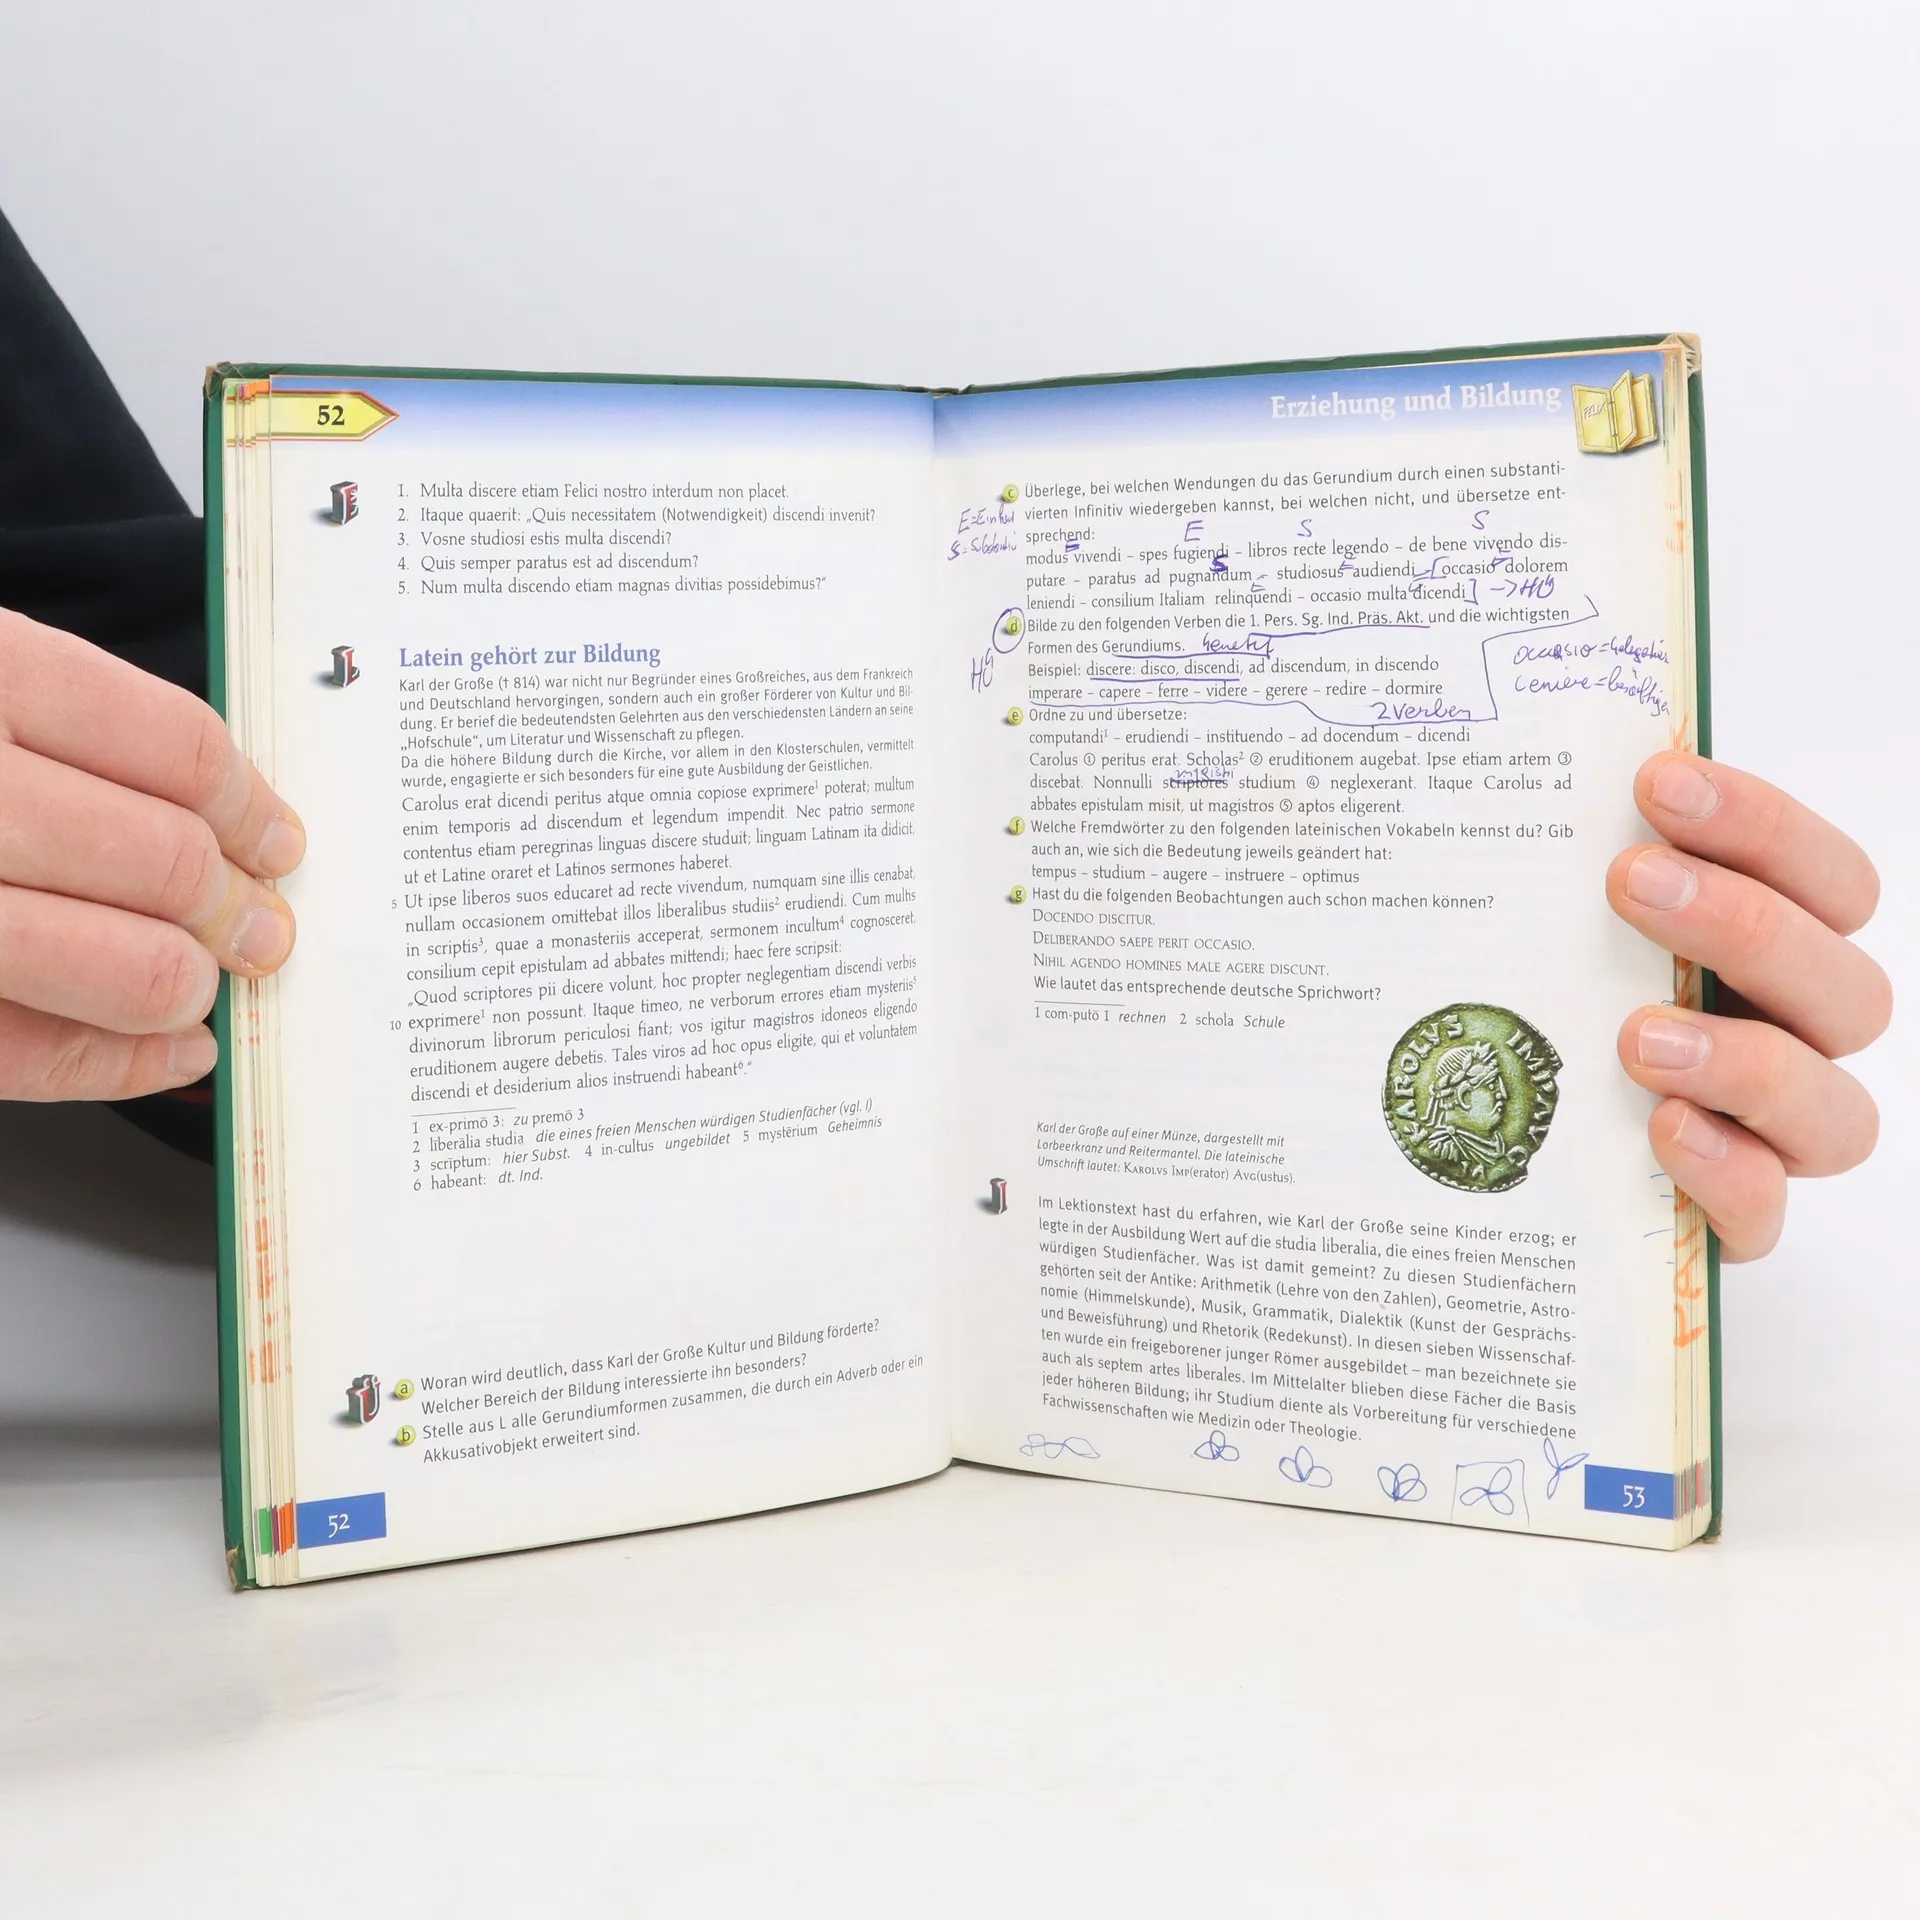 52
E
1. Multa discere etiam Felici nostro interdum non placet.
2. Itaque quaerit: „Quis necessitatem (Notwendigkeit) discendi invenit?
3. Vosne studiosi estis multa discendi?
4. Quis semper paratus est ad discendum?
5. Num multa discendo etiam magnas divitias possidebimus?“
L
Latein gehört zur Bildung
Karl der Große († 814) war nicht nur Begründer eines Großreiches, aus dem Frankreich
und Deutschland hervorgingen, sondern auch ein großer Förderer von Kultur und Bil-
dung. Er berief die bedeutendsten Gelehrten aus den verschiedensten Ländern an seine
„Hofschule“, um Literatur und Wissenschaft zu pflegen.
Da die höhere Bildung durch die Kirche, vor allem in den Klosterschulen, vermittelt
wurde, engagierte er sich besonders für eine gute Ausbildung der Geistlichen.
Carolus erat dicendi peritus atque omnia copiose exprimere¹ poterat; multum
enim temporis ad discendum et legendum impendit. Nec patrio sermone
contentus etiam peregrinas linguas discere studuit; linguam Latinam ita didicit,
ut et Latine oraret et Latinos sermones haberet.
5 Ut ipse liberos suos educaret ad recte vivendum, numquam sine illis cenabat,
nullam occasionem omittebat illos liberalibus studiis² erudiendi. Cum multis
in scriptis³, quae a monasteriis acceperat, sermonem incultum⁴ cognosceret,
consilium cepit epistulam ad abbates mittendi; haec fere scripsit:
„Quod scriptores pii dicere volunt, hoc propter neglegentiam discendi verbis
10 exprimere¹ non possunt. Itaque timeo, ne verborum errores etiam mysteriis⁵
divinorum librorum periculosi fiant; vos igitur magistros idoneos eligendo
eruditionem augere debetis. Tales viros ad hoc opus eligite, qui et voluntatem
discendi et desiderium alios instruendi habeant⁶.“
1 ex-primō 3: zu premō 3
2 līberālia studia die eines freien Menschen würdigen Studienfächer (vgl. I)
3 scrīptum: hier Subst. 4 in-cultus ungebildet 5 mystērium Geheimnis
6 habeant: dt. Ind.
Ü
a Woran wird deutlich, dass Karl der Große Kultur und Bildung förderte?
Welcher Bereich der Bildung interessierte ihn besonders?
b Stelle aus L alle Gerundiumformen zusammen, die durch ein Adverb oder ein
Akkusativobjekt erweitert sind.
52
Erziehung und Bildung
FELIX
c Überlege, bei welchen Wendungen du das Gerundium durch einen substanti-
vierten Infinitiv wiedergeben kannst, bei welchen nicht, und übersetze ent-
sprechend:
E S S
modus vivendi – spes fugiendi – libros recte legendo – de bene vivendo dis-
putare – paratus ad pugnandum – studiosus audiendi – [occasio dolorem
leniendi – consilium Italiam relinquendi – occasio multa dicendi] -> HÜ
d Bilde zu den folgenden Verben die 1. Pers. Sg. Ind. Präs. Akt. und die wichtigsten
HÜ
Formen des Gerundiums. Genetif
Beispiel: discere: disco, discendi, ad discendum, in discendo
imperare – capere – ferre – videre – gerere – redire – dormire
2 Verben
e Ordne zu und übersetze:
computandi¹ – erudiendi – instituendo – ad docendum – dicendi
Carolus ① peritus erat. Scholas² ② eruditionem augebat. Ipse etiam artem ③
discebat. Nonnulli scriptores studium ④ neglexerant. Itaque Carolus ad
abbates epistulam misit, ut magistros ⑤ aptos eligerent.
f Welche Fremdwörter zu den folgenden lateinischen Vokabeln kennst du? Gib
auch an, wie sich die Bedeutung jeweils geändert hat:
tempus – studium – augere – instruere – optimus
g Hast du die folgenden Beobachtungen auch schon machen können?
DOCENDO DISCITUR.
DELIBERANDO SAEPE PERIT OCCASIO.
NIHIL AGENDO HOMINES MALE AGERE DISCUNT.
Wie lautet das entsprechende deutsche Sprichwort?
1 com-putō 1 rechnen 2 schola Schule
KAROLVS IMP AVG
Karl der Große auf einer Münze, dargestellt mit
Lorbeerkranz und Reitermantel. Die lateinische
Umschrift lautet: KAROLVS IMP(erator) AVG(ustus).
I
Im Lektionstext hast du erfahren, wie Karl der Große seine Kinder erzog; er
legte in der Ausbildung Wert auf die studia liberalia, die eines freien Menschen
würdigen Studienfächer. Was ist damit gemeint? Zu diesen Studienfächern
gehörten seit der Antike: Arithmetik (Lehre von den Zahlen), Geometrie, Astro-
nomie (Himmelskunde), Musik, Grammatik, Dialektik (Kunst der Gesprächs-
und Beweisführung) und Rhetorik (Redekunst). In diesen sieben Wissenschaf-
ten wurde ein freigeborener junger Römer ausgebildet – man bezeichnete sie
auch als septem artes liberales. Im Mittelalter blieben diese Fächer die Basis
jeder höheren Bildung; ihr Studium diente als Vorbereitung für verschiedene
Fachwissenschaften wie Medizin oder Theologie.
53